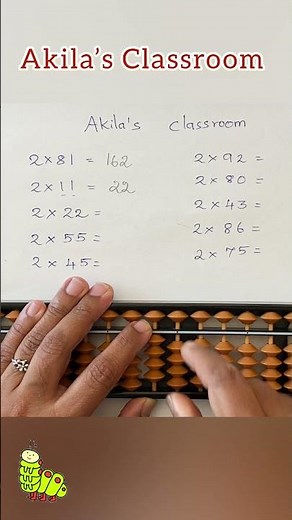 Akila's Classroom
Akila's classroom
2 × 81 = 162
2 × 11 = 22
2 × 22 =
2 × 55 =
2 × 45 =
2 × 92 =
2 × 80 =
2 × 43 =
2 × 86 =
2 × 75 =